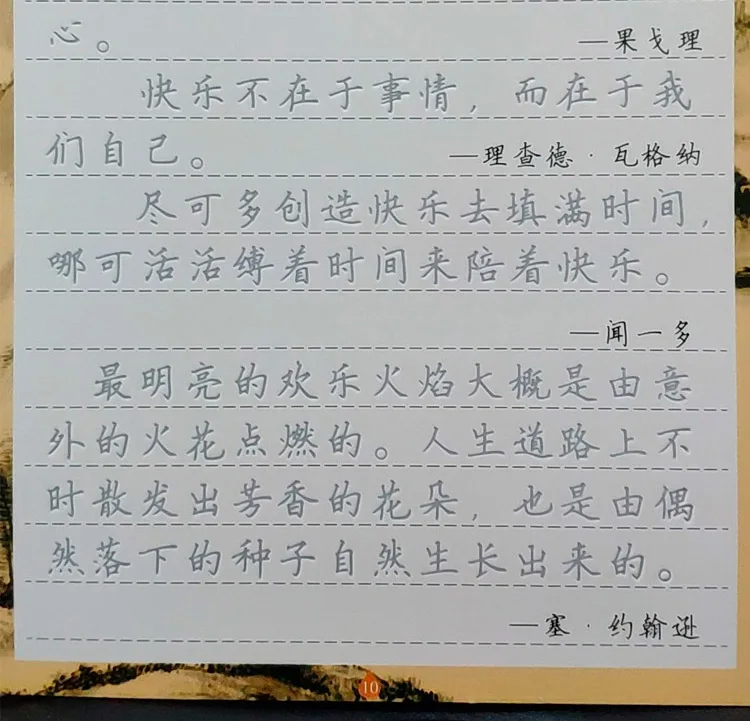 心。
—果戈理
快乐不在于事情，而在于我
们自己。
—理查德·瓦格纳
尽可多创造快乐去填满时间，
哪可活活缚着时间来陪着快乐。
—闻一多
最明亮的欢乐火焰大概是由意
外的火花点燃的。人生道路上不
时散发出芳香的花朵，也是由偶
然落下的种子自然生长出来的。
—塞·约翰逊
10